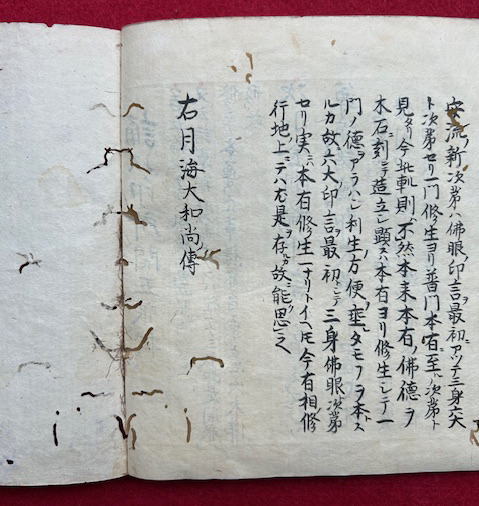 安流ノ新次第ハ佛眼ノ印言最初ニアツテ三身六大
ト次第セリ一門修生ヨリ普門本有ニ至ル次第ト
見タリ今此軌則ハ不然本来本有ノ佛德ヲ
本石ニ刻ミテ造立シ顕ス本有ヨリ修生シテ一
門ノ德ヲアラハシ利生方便ヲ垂タモフヲ本トス
ルカ故六大ノ印言最初ニシテ三身佛眼ト次第
セリ実ニハ本有修生一ナリトイヘ𪜈今有相修
行ノ地ノ上ニテハ尤是ヲ存スル故ニ能思之
右月海大和尚傳